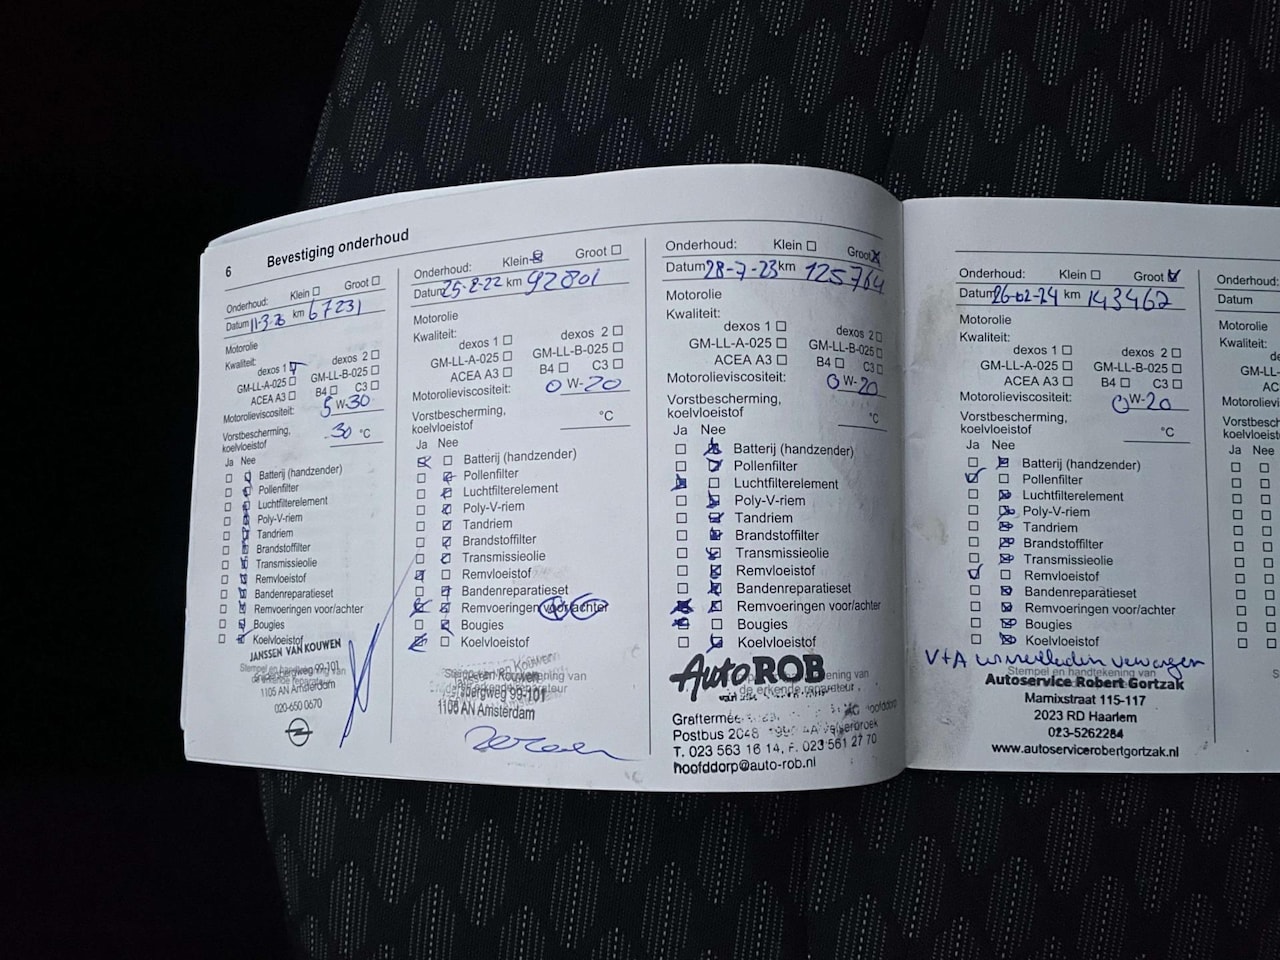 6 Bevestiging onderhoud
Onderhoud: Klein Groot
Datum 11-3-20 km 67231
Motorolie
Kwaliteit:
dexos 1 dexos 2
GM-LL-A-025 GM-LL-B-025
ACEA A3 B4 C3
Motorolieviscositeit: 5 W-30
Vorstbescherming,
koelvloeistof -30 °C
Ja Nee
Batterij (handzender)
Pollenfilter
Luchtfilterelement
Poly-V-riem
Tandriem
Brandstoffilter
Transmissieolie
Remvloeistof
Bandenreparatieset
Remvoeringen voor/achter
Bougies
Koelvloeistof
JANSSEN VAN KOUWEN
Stempel en handtekening van
de erkende reparateur
99-101
1105 AN Amsterdam
020-650 0670
Onderhoud: Klein Groot
Datum 25-2-22 km 92801
Motorolie
Kwaliteit:
dexos 1 dexos 2
GM-LL-A-025 GM-LL-B-025
ACEA A3 B4 C3
Motorolieviscositeit: 0 W-20
Vorstbescherming,
koelvloeistof °C
Ja Nee
Batterij (handzender)
Pollenfilter
Luchtfilterelement
Poly-V-riem
Tandriem
Brandstoffilter
Transmissieolie
Remvloeistof
Bandenreparatieset
Remvoeringen voor/achter
Bougies
Koelvloeistof
van Kouwen
99-101
1105 AN Amsterdam
Onderhoud: Klein Groot
Datum 28-7-23 km 125764
Motorolie
Kwaliteit:
dexos 1 dexos 2
GM-LL-A-025 GM-LL-B-025
ACEA A3 B4 C3
Motorolieviscositeit: 0 W-20
Vorstbescherming,
koelvloeistof °C
Ja Nee
Batterij (handzender)
Pollenfilter
Luchtfilterelement
Poly-V-riem
Tandriem
Brandstoffilter
Transmissieolie
Remvloeistof
Bandenreparatieset
Remvoeringen voor/achter
Bougies
Koelvloeistof
Auto ROB
de erkende reparateur
Hoofddorp
Postbus 2048
T. 023 563 16 14, F. 023 561 27 70
hoofddorp@auto-rob.nl
Onderhoud: Klein Groot
Datum 26-02-24 km 143462
Motorolie
Kwaliteit:
dexos 1 dexos 2
GM-LL-A-025 GM-LL-B-025
ACEA A3 B4 C3
Motorolieviscositeit: 0 W-20
Vorstbescherming,
koelvloeistof °C
Ja Nee
Batterij (handzender)
Pollenfilter
Luchtfilterelement
Poly-V-riem
Tandriem
Brandstoffilter
Transmissieolie
Remvloeistof
Bandenreparatieset
Remvoeringen voor/achter
Bougies
Koelvloeistof
V+A wisselladin vervangen
Stempel en handtekening van
Autoservice Robert Gortzak
Marnixstraat 115-117
2023 RD Haarlem
023-5262284
www.autoservicerobertgortzak.nl
Onderhoud:
Datum
Motorolie
Kwaliteit:
Ja Nee